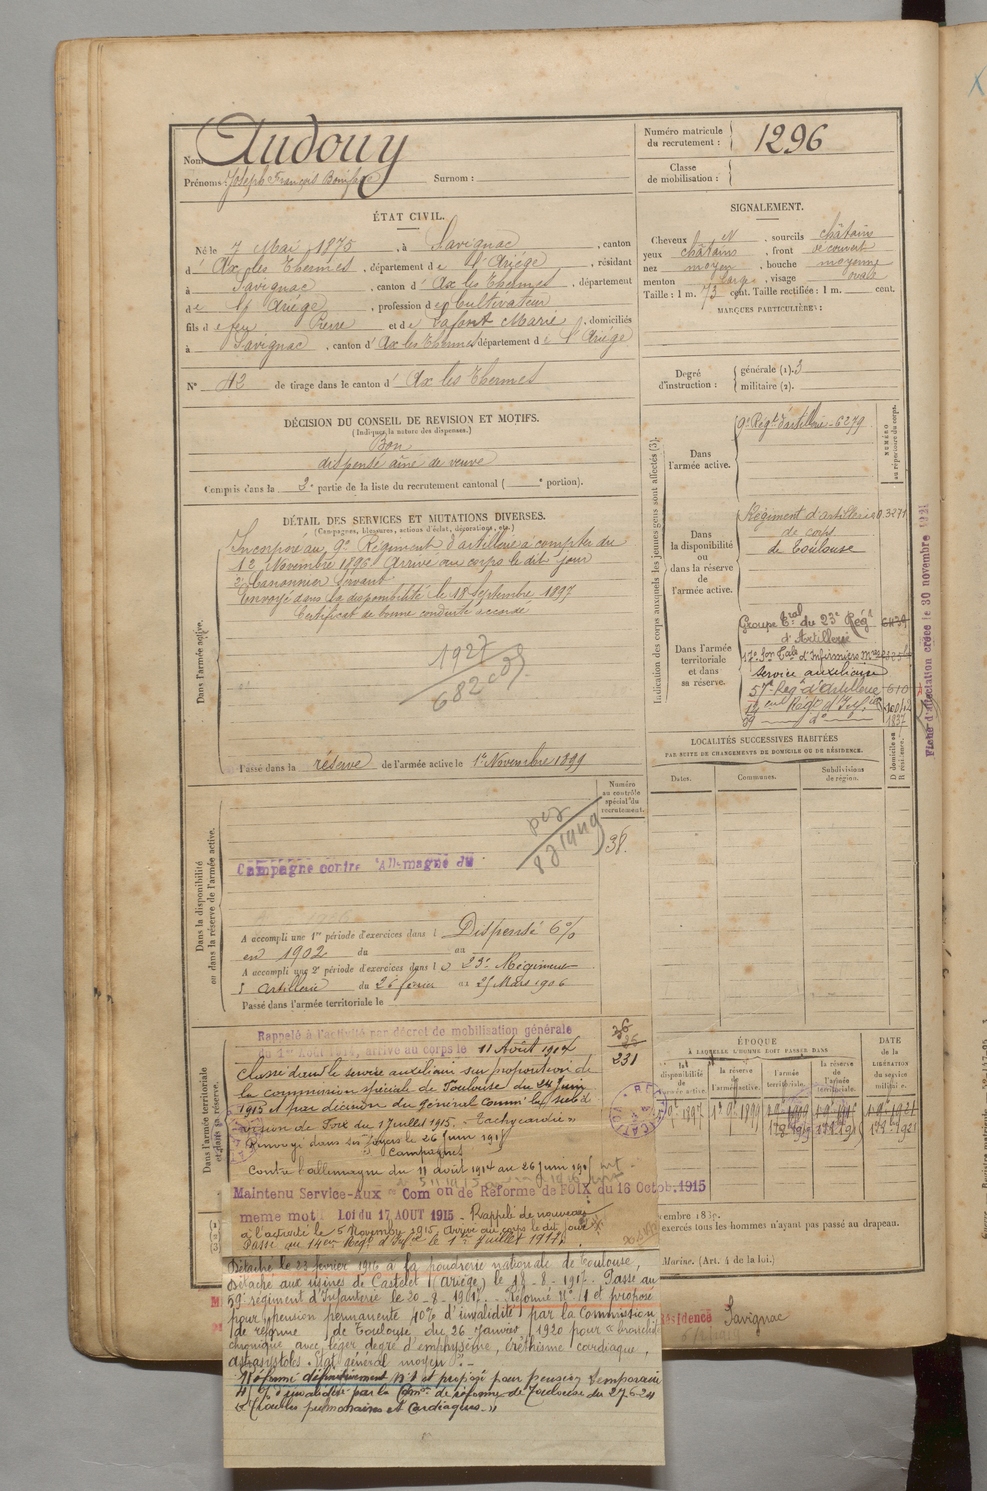 Nom Audouy
Prénoms : Joseph François Surnom :
Numéro matricule du recrutement : 1296
Classe de mobilisation :
ÉTAT CIVIL.
Né le 7 Mai 1875, à Savignac, canton
d' Ax les Thermes, département de l'Ariège, résidant
à Savignac, canton d' Ax les Thermes, département
de l'Ariège, profession de Cultivateur
fils de feu Pierre et de Lafont Marie, domiciliés
à Savignac, canton d' Ax les Thermes département de l'Ariège
N° 42 de tirage dans le canton d' Ax les Thermes
SIGNALEMENT.
Cheveux N, sourcils châtains
yeux châtains, front découvert
nez moyen, bouche moyenne
menton large, visage ovale
Taille : 1 m. 73 cent. Taille rectifiée : 1 m. cent.
MARQUES PARTICULIÈRES :
Degré d'instruction : générale (1). 3
militaire (2).
DÉCISION DU CONSEIL DE REVISION ET MOTIFS.
(Indiquer la nature des dispenses.)
Bon
dispensé aîné de veuve
Compris dans la 3e partie de la liste du recrutement cantonal ( e portion).
DÉTAIL DES SERVICES ET MUTATIONS DIVERSES.
(Campagnes, blessures, actions d'éclat, décorations, etc.)
Dans l'armée active.
Incorporé au 9e Régiment d'artillerie à compter du
12 Novembre 1896 Arrivé au corps le dit jour
2e Canonnier Servant
Envoyé dans la disponibilité le 18 Septembre 1897
Certificat de bonne conduite accordé
1927
682
Passé dans la réserve de l'armée active le 1er Novembre 1899
Indication des corps auxquels les jeunes gens sont affectés (3).
NUMÉRO au répertoire du corps.
Dans l'armée active.
9e Régt d'artillerie - 6279
Dans la disponibilité ou dans la réserve de l'armée active.
Régiment d'artillerie 03271
de corps
de Toulouse
Dans l'armée territoriale et dans sa réserve.
Groupe Tral du 23e Régt
d'Artillerie
Service auxiliaire
57e Régt d'artillerie 610
59 do 1837
Fiche d'affectation créée le 30 novembre 1921
LOCALITÉS SUCCESSIVES HABITÉES
PAR SUITE DE CHANGEMENTS DE DOMICILE OU DE RÉSIDENCE.
Dates. Communes. Subdivisions de région. D domicile ou R résidence.
Numéro au contrôle spécial du recrutement.
38.
Dans la disponibilité ou dans la réserve de l'armée active.
Campagne contre l'Allemagne du
A accompli une 1re période d'exercices dans l Dispensé 6%
en 1902 du au
A accompli une 2e période d'exercices dans l e 23e Régiment
d'Artillerie du 26 février au 25 Mars 1906
Passé dans l'armée territoriale le
Dans l'armée territoriale et dans sa réserve.
Rappelé à l'activité par décret de mobilisation générale
du 1er Août 1914, arrivé au corps le 11 Août 1914
231
Classé dans le service auxiliaire sur proposition de
la commission spéciale de Toulouse du 24 Juin
1915 et par décision du général Commt la subdi
vision de Foix du 17 juillet 1915. "Tachycardie"
Renvoyé dans ses foyers le 26 Juin 1915
Campagnes
Contre l'allemagne du 11 août 1914 au 26 juin 1915
Maintenu Service-Aux re Com on de Réforme de FOIX du 16 Octob. 1915
meme motif Loi du 17 AOUT 1915 - Rappelé de nouveau
à l'activité le 5 Novembre 1915. Arrivé au corps le dit jour
Passé au 14eme Régt d'Infie le 1er Juillet 1917.
Détaché le 23 février 1916 à la poudrerie nationale de Toulouse,
Détaché aux usines de Castelet (Ariège) le 18-8-1917. Passé au
59e régiment d'Infanterie le 20-8-1917. - Réformé N° 1 et proposé
pour pension permanente 10% d'invalidité par la Commission
de réforme de Toulouse du 26 Janvier 1920 pour "bronchite
chronique avec léger degré d'emphysème, éréthisme cardiaque,
extrasystoles. Etat général moyen". -
Réformé définitivement N° 1 et proposé pour pension temporaire
% d'invalidité par la Comon de réforme de Toulouse du 27-6-24
"Troubles pulmonaires et Cardiaques."
ÉPOQUE
À LAQUELLE L'HOMME DOIT PASSER DANS
la disponibilité de l'armée active. la réserve de l'armée active. l'armée territoriale. la réserve de l'armée territoriale.
DATE de la LIBÉRATION du service militaire.
embre 1889.
exercés tous les hommes n'ayant pas passé au drapeau.
Marine. (Art. 4 de la loi.)
Résidence Savignac